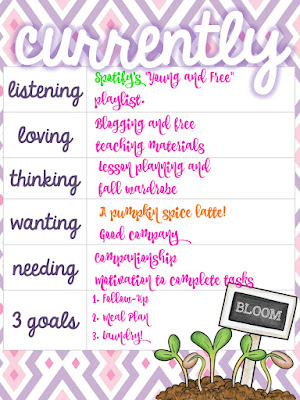 currently
listening
Spotify's "Young and Free"
playlist.
loving
Blogging and free
teaching materials
thinking
Lesson planning and
fall wardrobe
wanting
A pumpkin spice latte!
Good company
needing
Companionship
motivation to complete tasks
3 goals
1. Follow-Up
2. Meal Plan
3. Laundry!
BLOOM